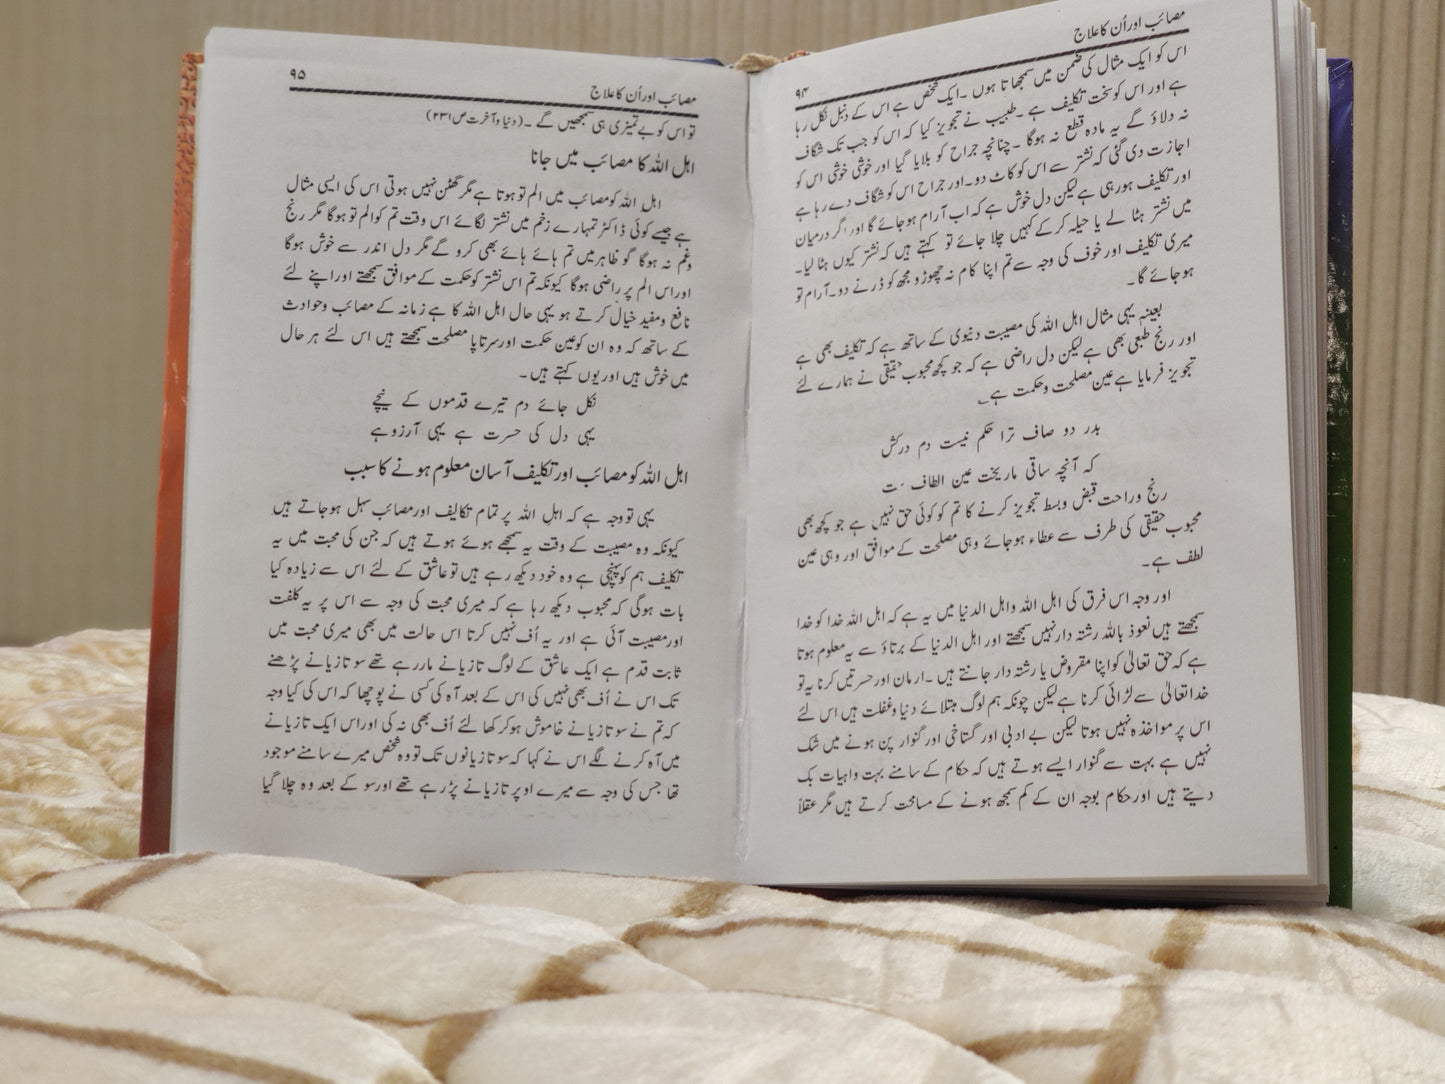 مصائب اور اُن کا علاج
۹۴
اس کو ایک مثال کی ضمن میں سمجھاتا ہوں ۔ ایک شخص ہے اس کے دنبل نکل رہا
ہے اور اس کو سخت تکلیف ہے ۔ طبیب نے تجویز کیا کہ اس کو جب تک شگاف
نہ دلاؤ گے یہ مادہ قطع نہ ہوگا ۔ چنانچہ جراح کو بلایا گیا اور خوشی خوشی اس کو
اجازت دی گئی کہ نشتر سے اس کو کاٹ دو۔ اور جراح اس کو شگاف دے رہا ہے
اور تکلیف ہو رہی ہے لیکن دل خوش ہے کہ اب آرام ہو جائے گا اور اگر درمیان
میں نشتر ہٹا لے یا حیلہ کر کے کہیں چلا جائے تو کہتے ہیں کہ نشتر کیوں ہٹا لیا۔
میری تکلیف اور خوف کی وجہ سے تم اپنا کام نہ چھوڑو مجھ کو ڈرنے دو۔ آرام تو
ہو جائے گا۔
بعینہ یہی مثال اہل اللہ کی مصیبت دنیوی کے ساتھ ہے کہ تکلیف بھی ہے
اور رنج طبعی بھی ہے لیکن دل راضی ہے کہ جو کچھ محبوب حقیقی نے ہمارے لئے
تجویز فرمایا ہے عین مصلحت وحکمت ہے۔
بدر دو صاف ترا حکم نیست دم درکش
کہ آنچہ ساقی ما ریخت عین الطاف ست
رنج وراحت قبض وبسط تجویز کرنے کا تم کو کوئی حق نہیں ہے جو کچھ بھی
محبوب حقیقی کی طرف سے عطاء ہو جائے وہی مصلحت کے موافق اور وہی عین
لطف ہے۔
اور وجہ اس فرق کی اہل اللہ واہل الدنیا میں یہ ہے کہ اہل اللہ خدا کو خدا
سمجھتے ہیں نعوذ باللہ رشتہ دار نہیں سمجھتے اور اہل الدنیا کے برتاؤ سے یہ معلوم ہوتا
ہے کہ حق تعالیٰ کو اپنا مقروض یا رشتہ دار جانتے ہیں ۔ ارمان اور حسرتیں کرنا یہ تو
خدا تعالیٰ سے لڑائی کرنا ہے لیکن چونکہ ہم لوگ مبتلائے دنیا وغفلت ہیں اس لئے
اس پر مواخذہ نہیں ہوتا لیکن بے ادبی اور گستاخی اور گنوار پن ہونے میں شک
نہیں ہے بہت سے گنوار ایسے ہوتے ہیں کہ حکام کے سامنے بہت واہیات بک
دیتے ہیں اور حکام بوجہ ان کے کم سمجھ ہونے کے مسامحت کرتے ہیں مگر عقلاً
۹۵
مصائب اور اُن کا علاج
تو اس کو بے تمیزی ہی سمجھیں گے ۔ (دنیا وآخرت ص ۲۳۱)
اہل اللہ کا مصائب میں جانا
اہل اللہ کو مصائب میں الم تو ہوتا ہے مگر گھٹن نہیں ہوتی اس کی ایسی مثال
ہے جیسے کوئی ڈاکٹر تمہارے زخم میں نشتر لگائے اس وقت تم کو الم تو ہوگا مگر رنج
وغم نہ ہوگا گو ظاہر میں تم ہائے ہائے بھی کرو گے مگر دل اندر سے خوش ہوگا
اور اس الم پر راضی ہوگا کیونکہ تم اس نشتر کو حکمت کے موافق سمجھتے اور اپنے لئے
نافع ومفید خیال کرتے ہو یہی حال اہل اللہ کا ہے زمانہ کے مصائب وحوادث
کے ساتھ کہ وہ ان کو عین حکمت اور سرتاپا مصلحت سمجھتے ہیں اس لئے ہر حال
میں خوش ہیں اور یوں کہتے ہیں ۔
نکل جائے دم تیرے قدموں کے نیچے
یہی دل کی حسرت ہے یہی آرزو ہے
اہل اللہ کو مصائب اور تکلیف آسان معلوم ہونے کا سبب
یہی تو وجہ ہے کہ اہل اللہ پر تمام تکالیف اور مصائب سہل ہو جاتے ہیں
کیونکہ وہ مصیبت کے وقت یہ سمجھے ہوئے ہوتے ہیں کہ جن کی محبت میں یہ
تکلیف ہم کو پہنچی ہے وہ خود دیکھ رہے ہیں تو عاشق کے لئے اس سے زیادہ کیا
بات ہوگی کہ محبوب دیکھ رہا ہے کہ میری محبت کی وجہ سے اس پر یہ کلفت
اور مصیبت آئی ہے اور یہ اُف نہیں کرتا اس حالت میں بھی میری محبت میں
ثابت قدم ہے ایک عاشق کے لوگ تازیانے مار رہے تھے سو تازیانے پڑھنے
تک اس نے اُف بھی نہیں کی اس کے بعد آہ کی کسی نے پوچھا کہ اس کی کیا وجہ
کہ تم نے سو تازیانے خاموش ہو کر کھا لئے اُف بھی نہ کی اور اس ایک تازیانے
میں آہ کرنے لگے اس نے کہا کہ سو تازیانوں تک تو وہ شخص میرے سامنے موجود
تھا جس کی وجہ سے میرے اوپر تازیانے پڑ رہے تھے اور سو کے بعد وہ چلا گیا